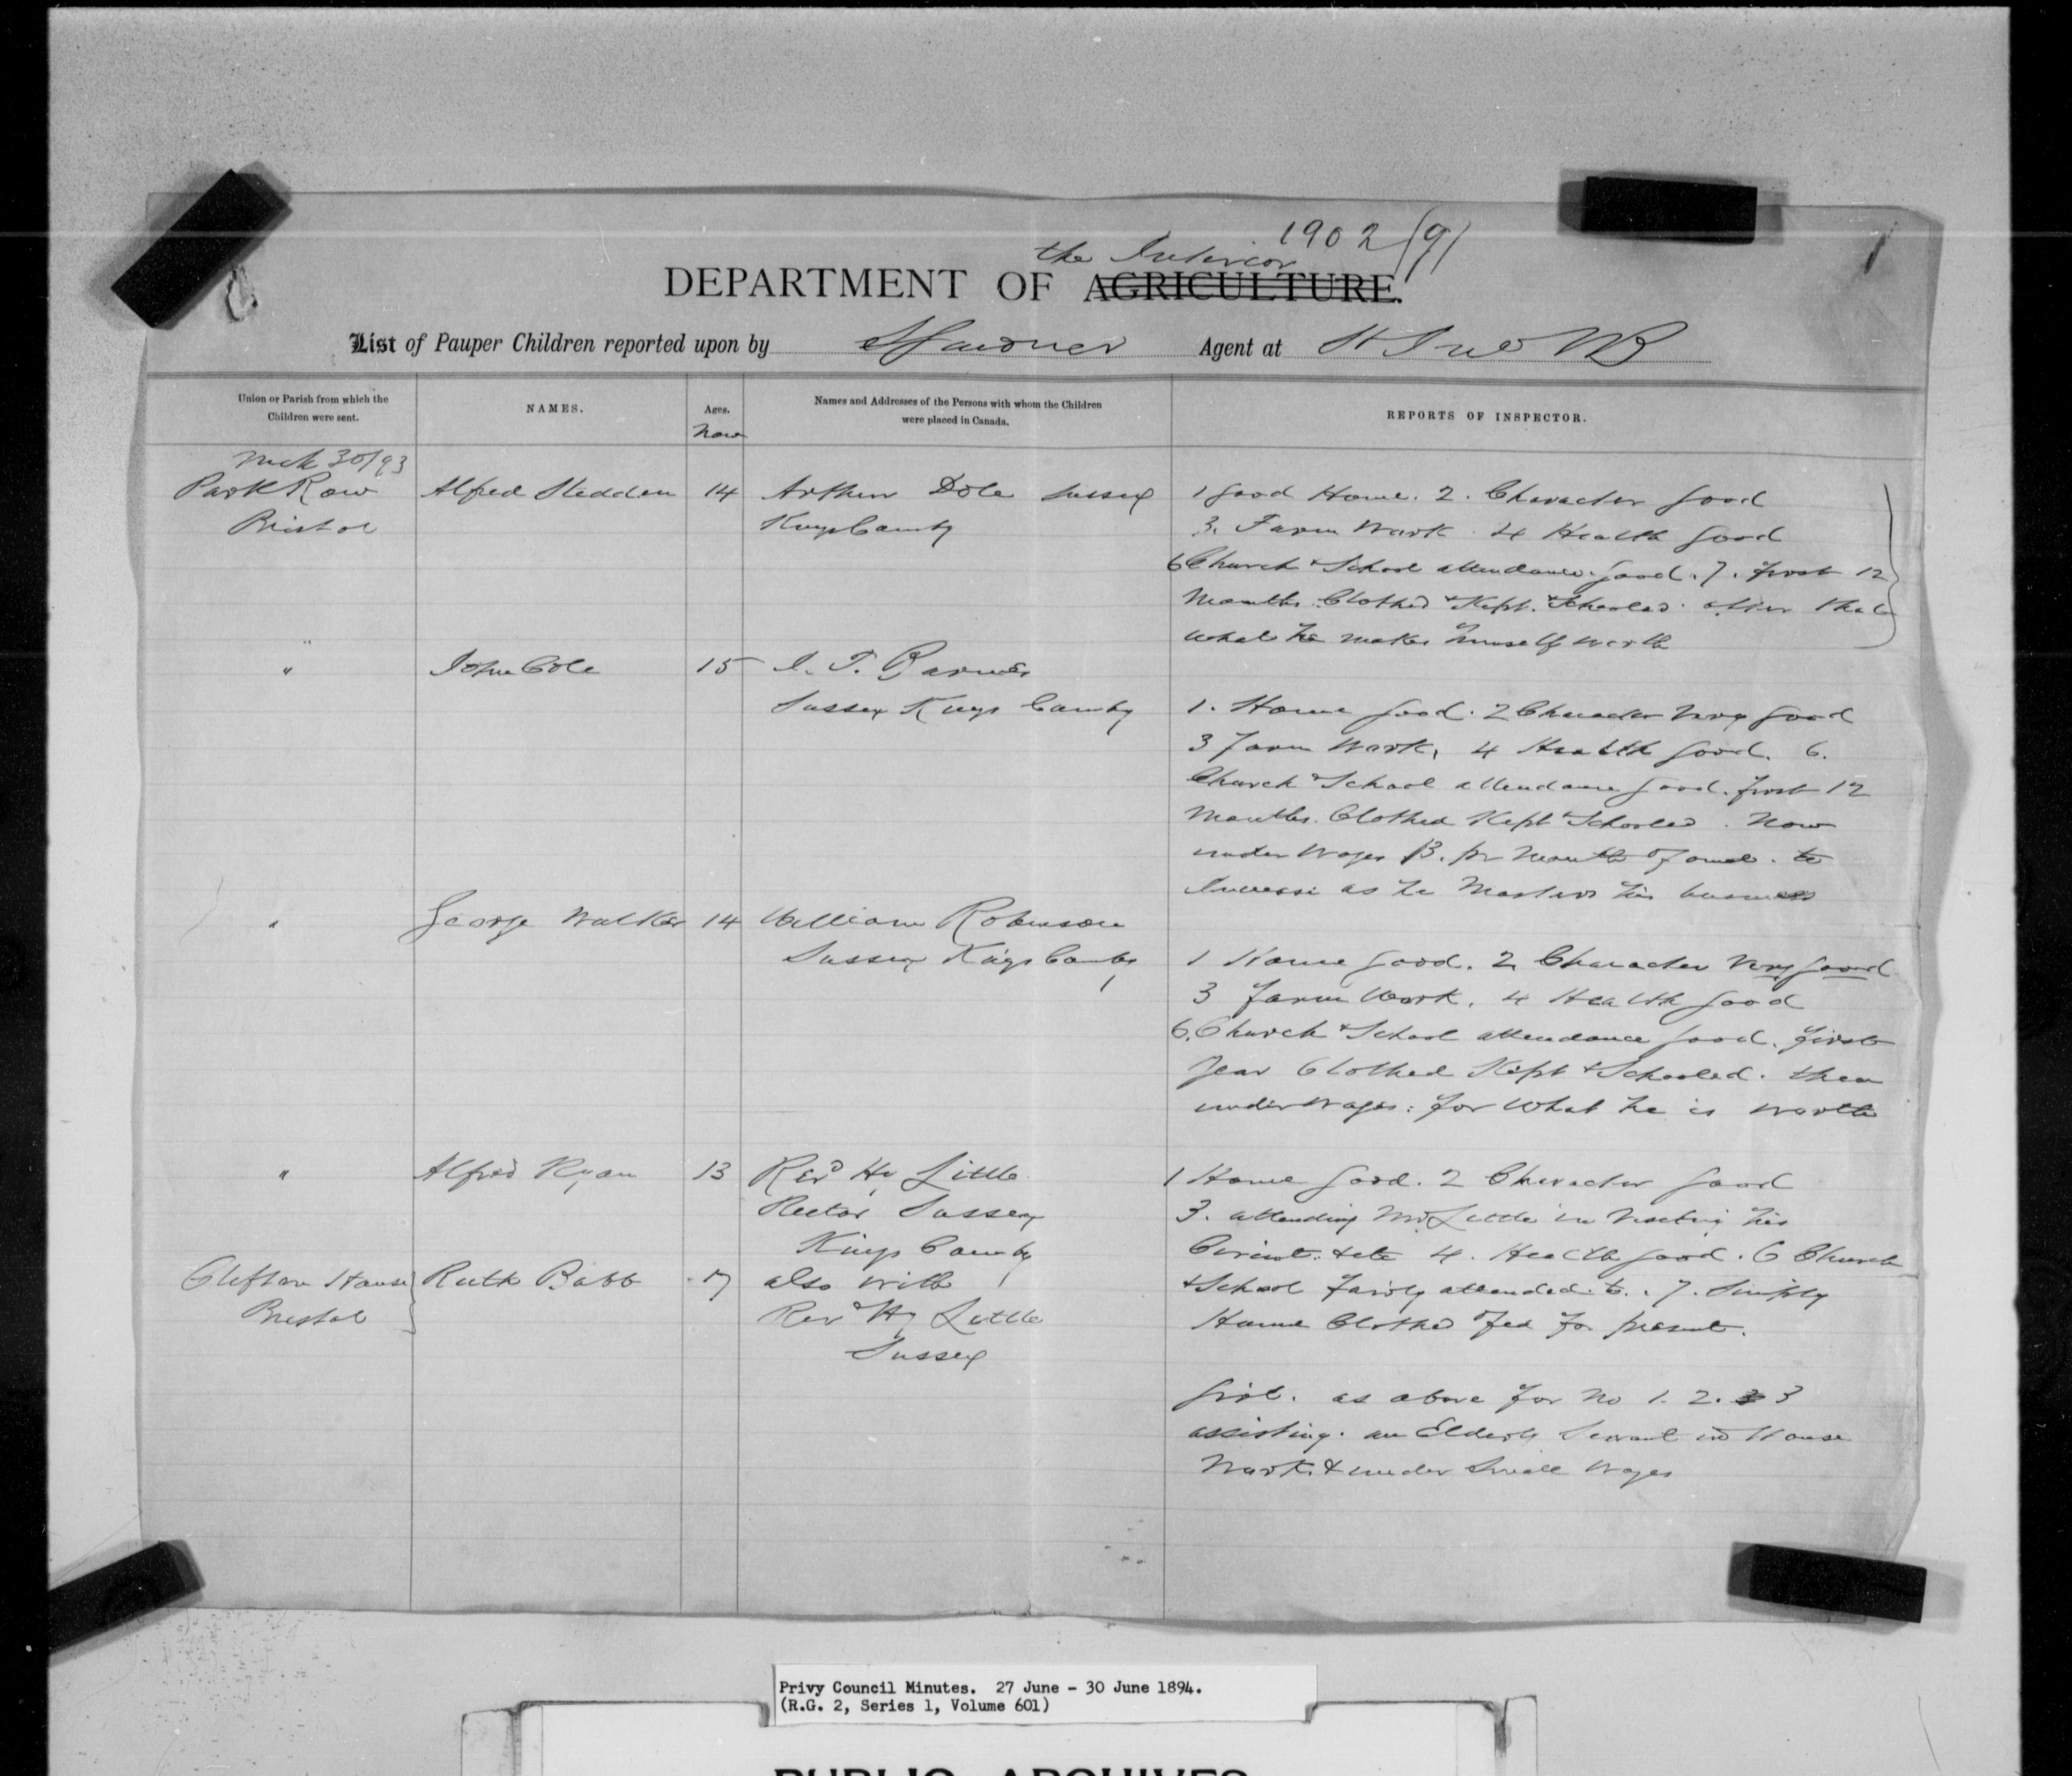 1902 (9)
1
the Interior
DEPARTMENT OF AGRICULTURE.
List of Pauper Children reported upon by Gardner Agent at St Jno NB
Union or Parish from which the Children were sent.
NAMES.
Ages.
Now
Names and Addresses of the Persons with whom the Children were placed in Canada.
REPORTS OF INSPECTOR.
30/93
Park Row
Bristol
Alfred Steddon
14
Arthur Dole Sussex
Kings County
1 good Home. 2. Character good
3. Farm Work. 4 Health good
6 Church & School attendance good. 7. first 12
Months Clothed & Kept. & Schooled. after that
what he makes himself worth
"
John Cole
15
I. T. Barnes
Sussex Kings County
1. Home good. 2 Character very good
3 farm Work, 4 Health good. 6.
Church & School attendance good. first 12
Months. Clothed Kept & Schooled. Now
under Wages $3. pr Month & found. to
Increase as he Masters his business
"
George Walker
14
William Robinson
Sussex Kings County
1 Home good. 2 Character very good
3 farm Work. 4 Health good
6. Church & School attendance good. first
Year Clothed Kept & Schooled. then
under wages: for what he is worth
"
Alfred Ryan
13
Revd Hy Little
Rector Sussex
Kings County
1 Home good. 2 Character good
3. attending Mr Little in visiting his
Circuit. & etc 4. Health good. 6 Church
& School fairly attended to. 7. Simply
Home Clothed & fed for present.
Clifton House
Bristol
Ruth Babb
17
also with
Revd Hy Little
Sussex
girl. as above for No 1. 2. 3
assisting. an Elderly Servant in House
Work. & under Small Wages
Privy Council Minutes. 27 June - 30 June 1894.
(R.G. 2, Series 1, Volume 601)
PUBLIC ARCHIVES